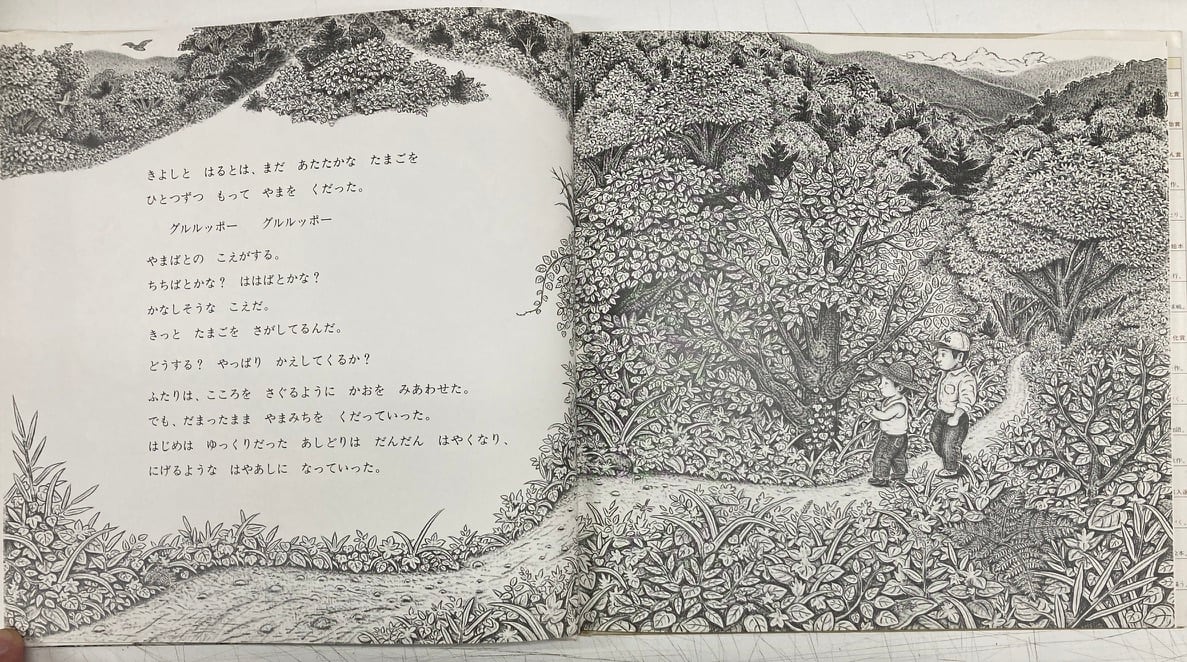 きよしと　はるとは、まだ　あたたかな　たまごを
ひとつずつ　もって　やまを　くだった。
グルルッポー　　グルルッポー
やまばとの　こえがする。
ちちばとかな？　ははばとかな？
かなしそうな　こえだ。
きっと　たまごを　さがしてるんだ。
どうする？　やっぱり　かえしてくるか？
ふたりは、こころを　さぐるように　かおを　みあわせた。
でも、だまったまま　やまみちを　くだっていった。
はじめは　ゆっくりだった　あしどりは　だんだん　はやくなり、
にげるような　はやあしに　なっていった。